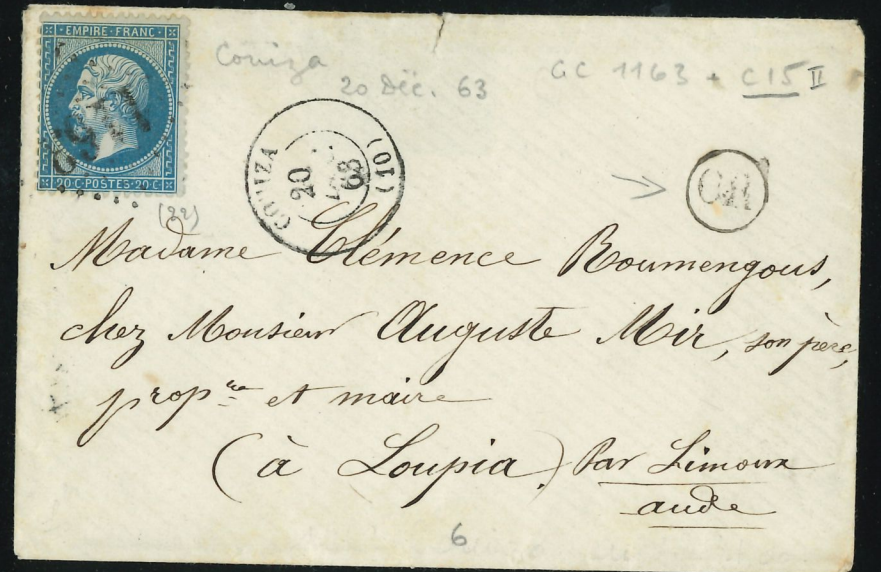 EMPIRE FRANC
20 C·POSTES·20 C
(22)
Couiza
20 Déc. 63
GC 1163 + C15 II
COUIZA
20
63
(10)
OR
Madame Clémence Roumengous,
chez Monsieur Auguste Mir, son père,
propre et maire
(à Loupia) Par Limoux
aude
6